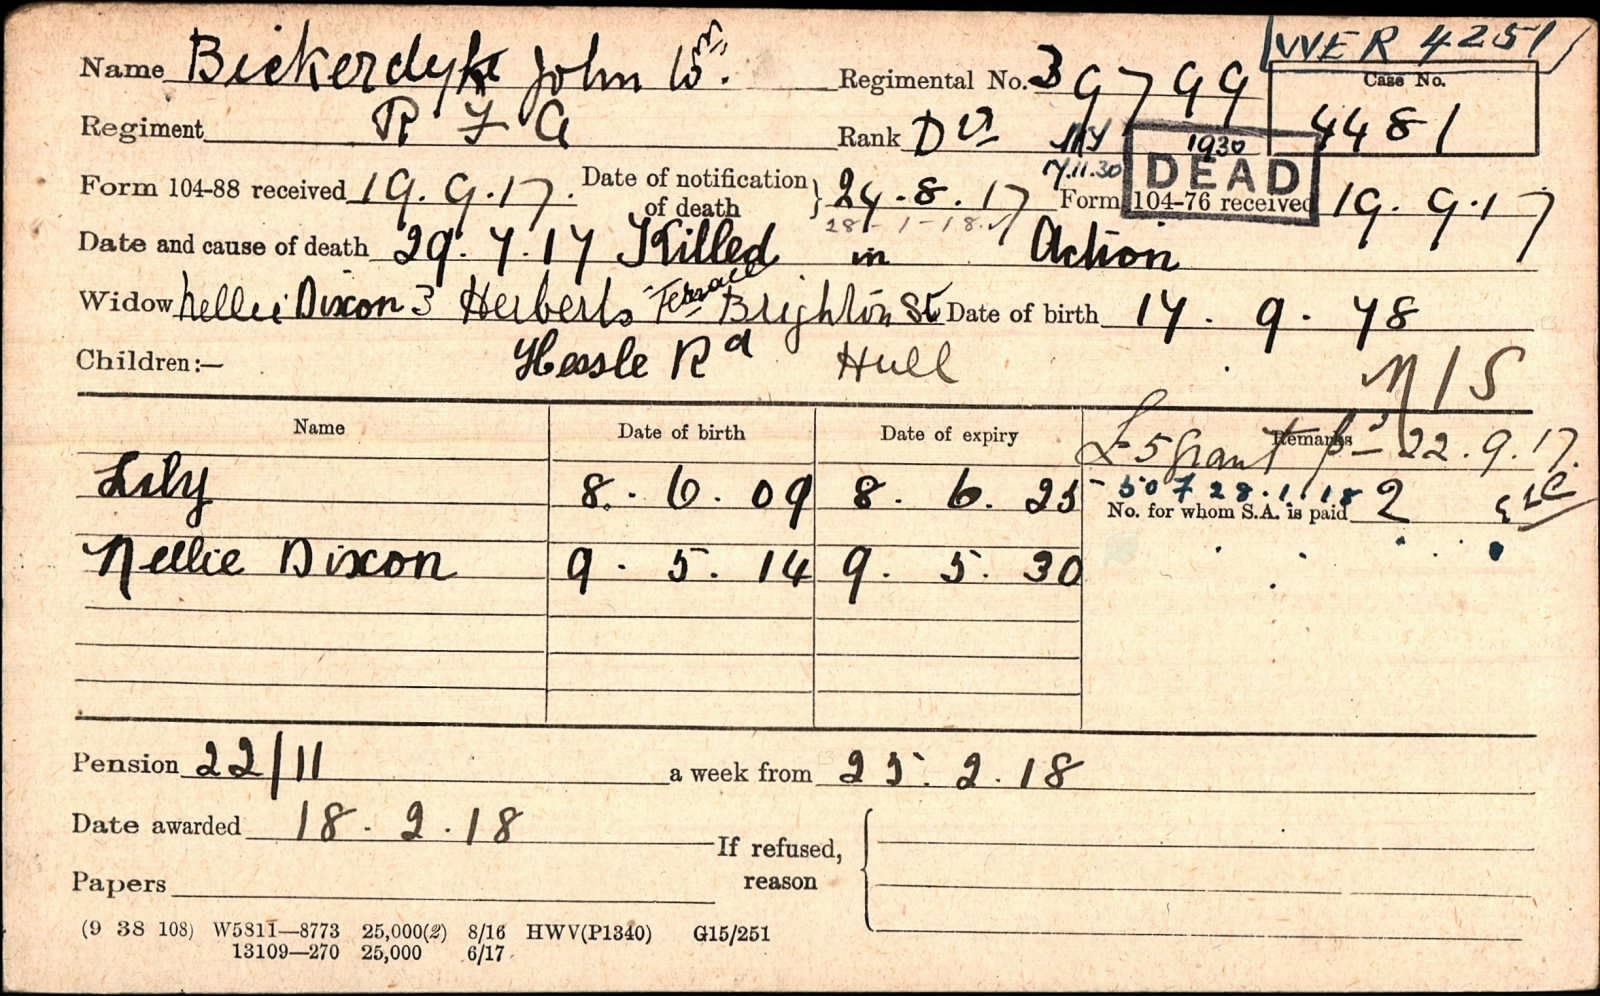 WER 4251
Name Bickerdyke John Wm. Regimental No. 39799 Case No.
4481
Regiment R F A Rank Dvr
1930
DEAD
7.11.30
Form 104-88 received 19.9.17. Date of notification of death } 24.8.17 Form 104-76 received 19.9.17
28-1-18
Date and cause of death 29.7.17 Killed in Action
Widow Nellie Dixon 3 Herberts Terrace Brighton St Date of birth 17.9.78
Children:— Hessle Rd Hull
M/S
Name Date of birth Date of expiry Remarks
£5 grant 22.9.17.
Lily 8.6.09 8.6.25
28.1.18
No. for whom S.A. is paid 2
Nellie Dixon 9.5.14 9.5.30
Pension 22/11 a week from 25.2.18
Date awarded 18.2.18
If refused, reason
Papers
(9 38 108) W5811—8773 25,000(2) 8/16 HWV(P1340) G15/251
13109—270 25,000 6/17